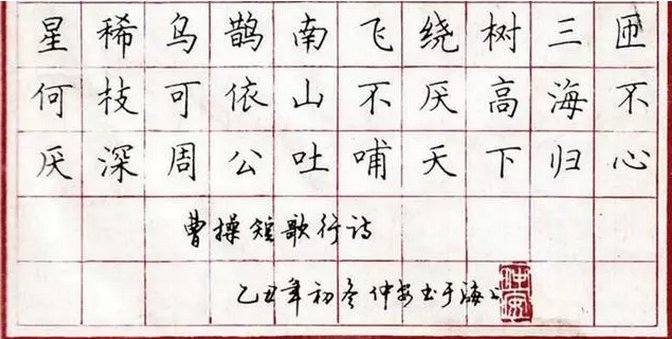 星稀乌鹊南飞绕树三匝
何枝可依山不厌高海不
厌深周公吐哺天下归心
曹操短歌行诗
乙丑年初冬仲安书于海上